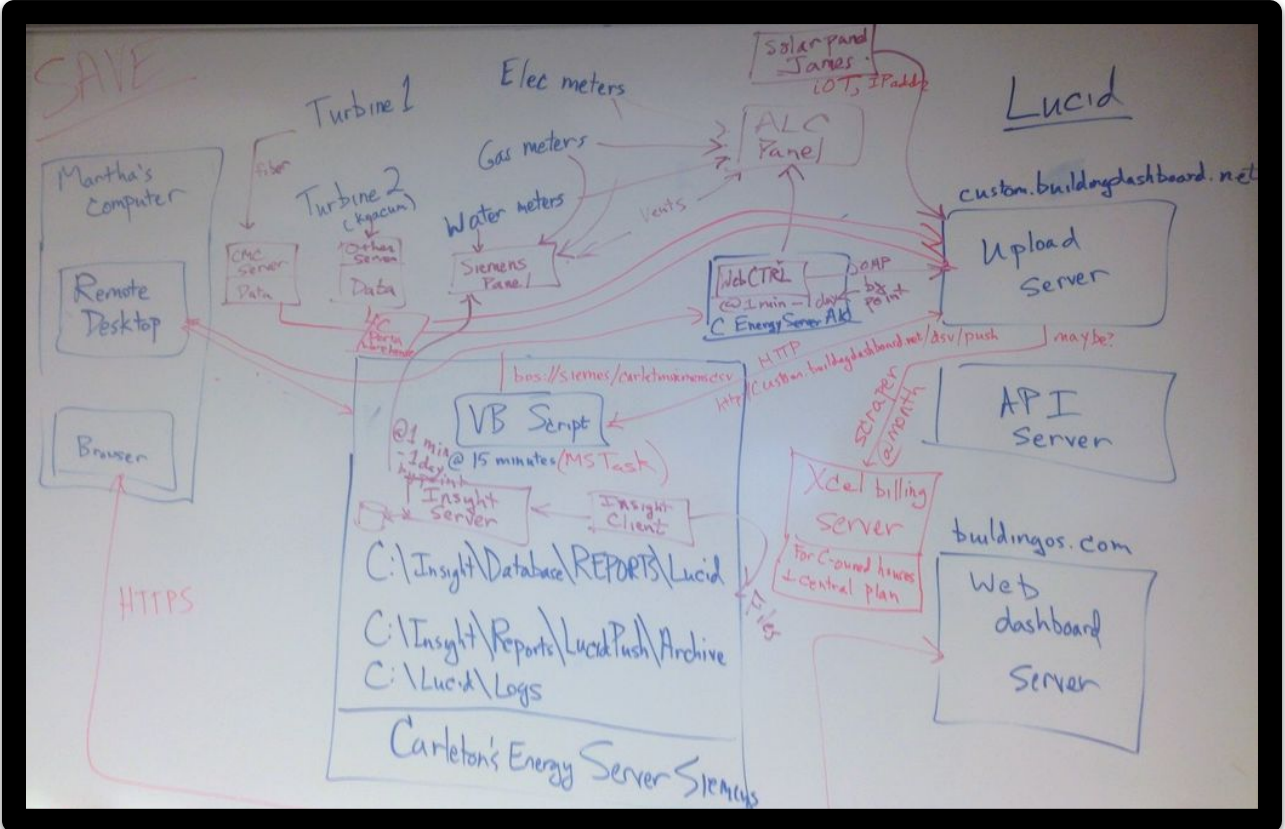 SAVE
Martha's
Computer
Remote
Desktop
Browser
HTTPS
Turbine 1
fiber
Turbine 2
CMC
Server
Data
Other
Server
Data
Elec meters
Gas meters
Water meters
Vents
Siemens
Panel
Solar panel
James
IOT, IP addr
ALC
Panel
WebCTRL
@ 1 min - 1 day
by
point
SOAP
C EnergyServer
Lucid
custom.buildingdashboard.net
Upload
Server
maybe?
HTTP
http://custom.buildingdashboard.net/dsv/push
API
Server
scraper
@month
Xcel billing
Server
For C-owned houses
+ central plan
buildingos.com
Web
dashboard
Server
VB Script
@ 15 minutes (MS Task)
@1 min
-1day
by point
Insight
Server
Insight
Client
Files
C:\Insight\Database\REPORTS\Lucid
C:\Insight\Reports\LucidPush\Archive
C:\Lucid\Logs
Carleton's Energy Server Siemens